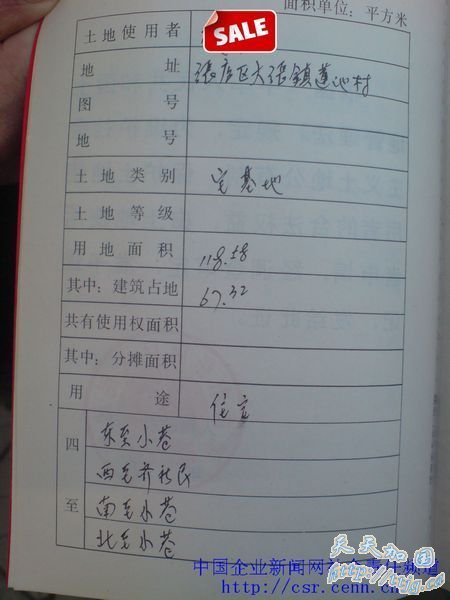 面积单位:平方米
土地使用者
SALE
地址 张店区大张镇莲池村
图号
地号
土地类别 宅基地
土地等级
用地面积 118.58
其中:建筑占地 67.32
共有使用权面积
其中:分摊面积
用途 住宅
四至
东至小巷
西至
南至小巷
北至小巷
天天加围
中国企业新闻网
http://csr.cenn.cn